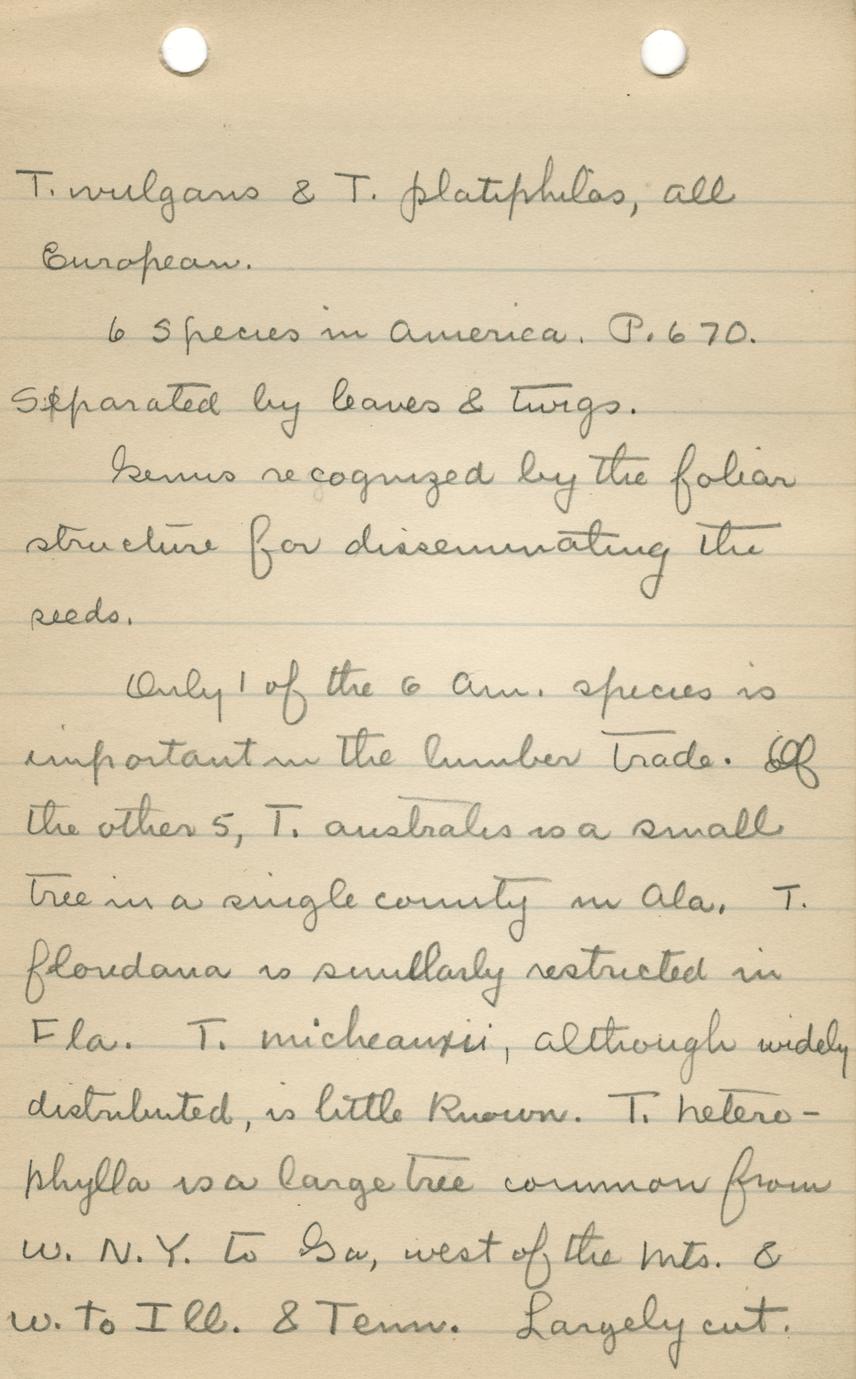 T. vulgaris & T. platiphilos, all
European.
6 Species in America. P. 670.
Separated by leaves & twigs.
Genus recognized by the foliar
structure for disseminating the
seeds.
Only 1 of the 6 Am. species is
important in the lumber trade. Of
the other 5, T. australis is a small
tree in a single county in Ala. T.
floridana is similarly restricted in
Fla. T. micheauxii, although widely
distributed, is little known. T. hetero-
phylla is a large tree common from
w. N.Y. to Ga, west of the Mts. &
w. to Ill. & Tenn. Largely cut.